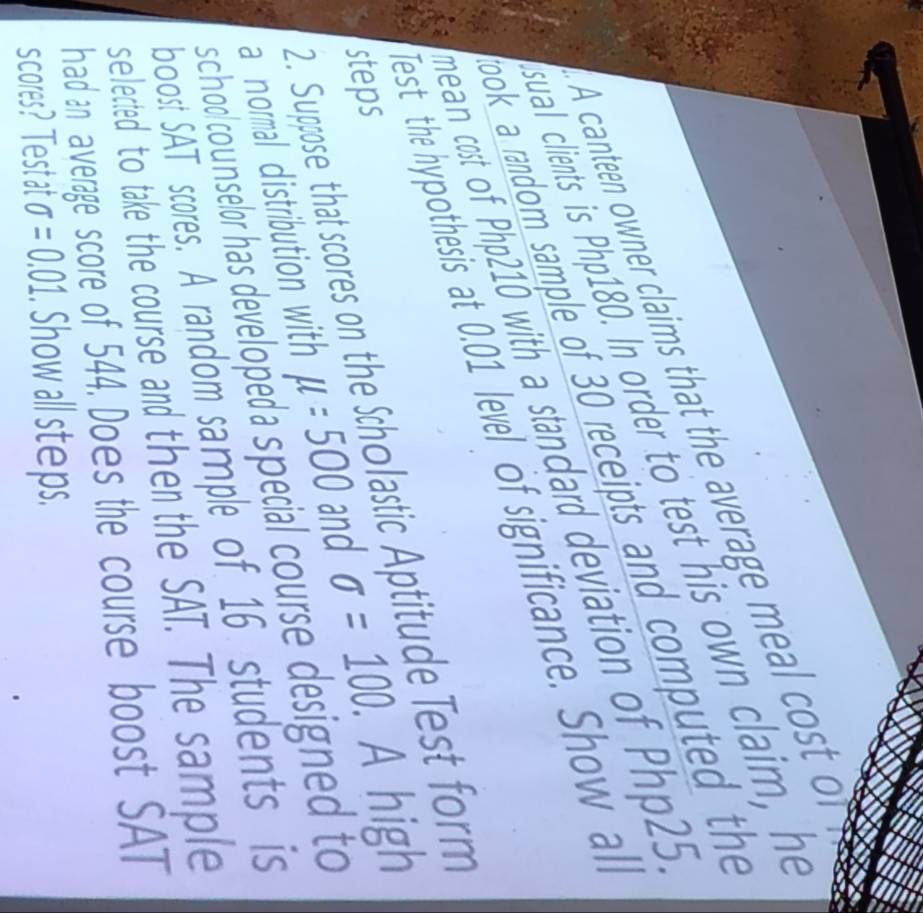 . A canteen owner claims that the average meal cost of
usual clients is Php180. In order to test his own claim, he
took a random sample of 30 receipts and computed the
mean cost of Php210 with a standard deviation of Php25.
Test the hypothesis at 0.01 level of significance. Show all
steps
2. Suppose that scores on the Scholastic Aptitude Test form
a normal distribution with μ = 500 and σ = 100. A high
school counselor has developed a special course designed to
boost SAT scores. A random sample of 16 students is
selected to take the course and then the SAT. The sample
had an average score of 544. Does the course boost SAT
scores? Test at σ = 0.01. Show all steps.